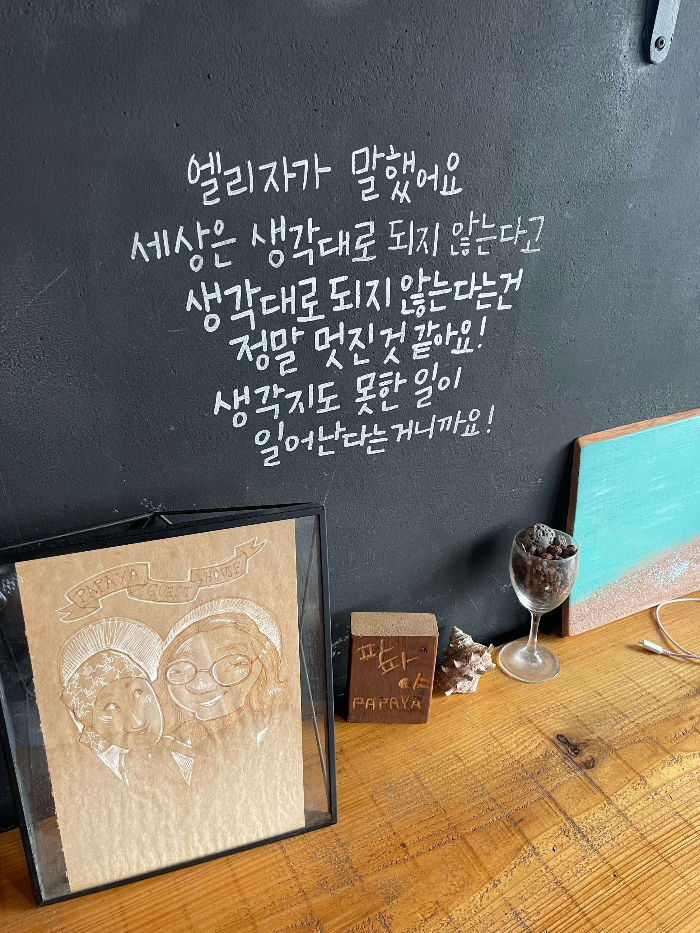 엘리자가 말했어요
세상은 생각대로 되지 않는다고
생각대로 되지 않는다는건
정말 멋진것 같아요!
생각지도 못한 일이
일어난다는거니까요!
PAPAYA GUEST HOUSE
파파야
PAPAYA